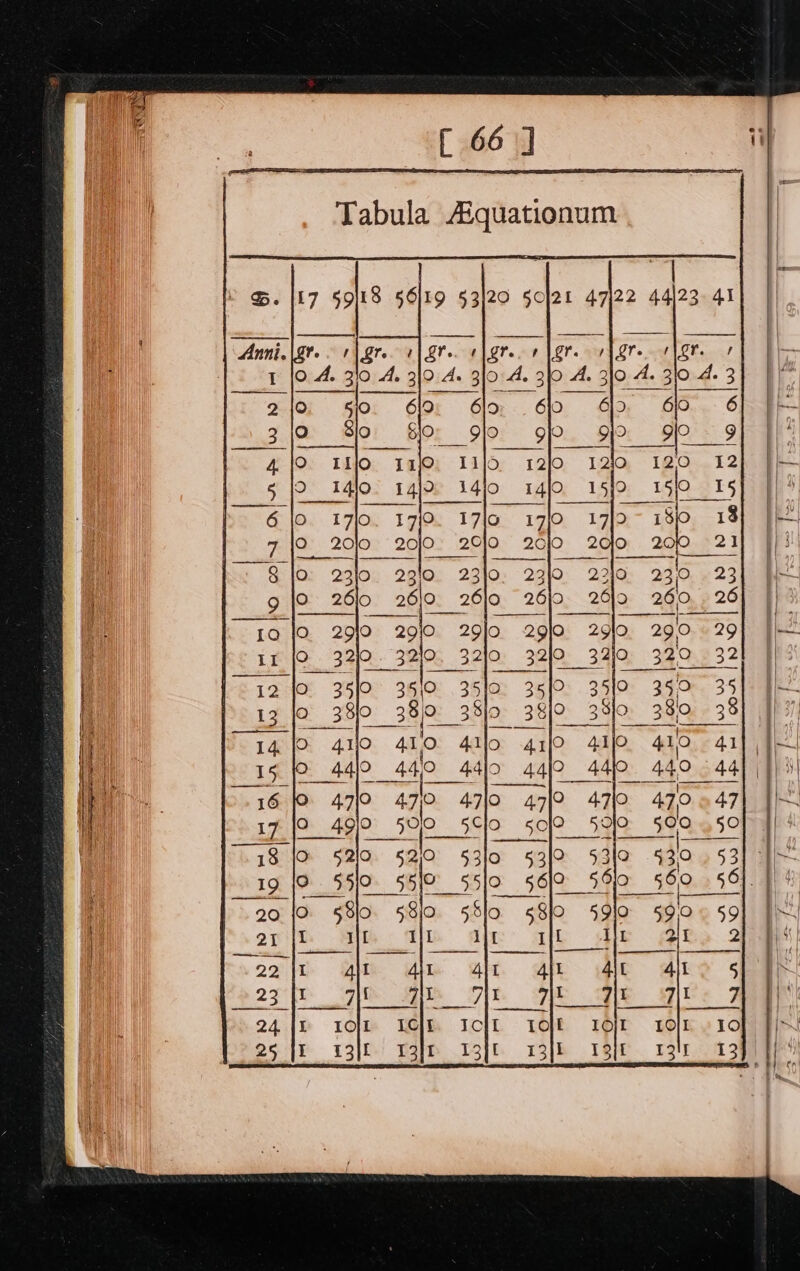 [ 66 ]
Tabula Æquationum
17 59|18 56|19 53|20 50|21 47|22 44|23 41
Anni. |gr. '|gr. '|gr. '|gr. '|gr. '|gr. '|gr. '
1 |0 A. 3|0 A. 3|0 A. 3|0 A. 3|0 A. 3|0 A. 3|0 A. 3
2 |0 5|0 6|0 6|0 6|0 6|0 6|0 6
3 |0 8|0 8|0 9|0 9|0 9|0 9|0 9
4 |0 11|0 11|0 11|0 12|0 12|0 12|0 12
5 |0 14|0 14|0 14|0 14|0 15|0 15|0 15
6 |0 17|0 17|0 17|0 17|0 17|0 18|0 18
7 |0 20|0 20|0 20|0 20|0 20|0 20|0 21
8 |0 23|0 23|0 23|0 23|0 23|0 23|0 23
9 |0 26|0 26|0 26|0 26|0 26|0 26|0 26
10 |0 29|0 29|0 29|0 29|0 29|0 29|0 29
11 |0 32|0 32|0 32|0 32|0 32|0 32|0 32
12 |0 35|0 35|0 35|0 35|0 35|0 35|0 35
13 |0 38|0 38|0 38|0 38|0 38|0 38|0 38
14 |0 41|0 41|0 41|0 41|0 41|0 41|0 41
15 |0 44|0 44|0 44|0 44|0 44|0 44|0 44
16 |0 47|0 47|0 47|0 47|0 47|0 47|0 47
17 |0 49|0 50|0 50|0 50|0 50|0 50|0 50
18 |0 52|0 52|0 53|0 53|0 53|0 53|0 53
19 |0 55|0 55|0 55|0 56|0 56|0 56|0 56
20 |0 58|0 58|0 58|0 58|0 59|0 59|0 59
21 |1 1|1 1|1 1|1 1|1 1|1 2|1 2
22 |1 4|1 4|1 4|1 4|1 4|1 4|1 5
23 |1 7|1 7|1 7|1 7|1 7|1 7|1 7
24 |1 10|1 10|1 10|1 10|1 10|1 10|1 10
25 |1 13|1 13|1 13|1 13|1 13|1 13|1 13